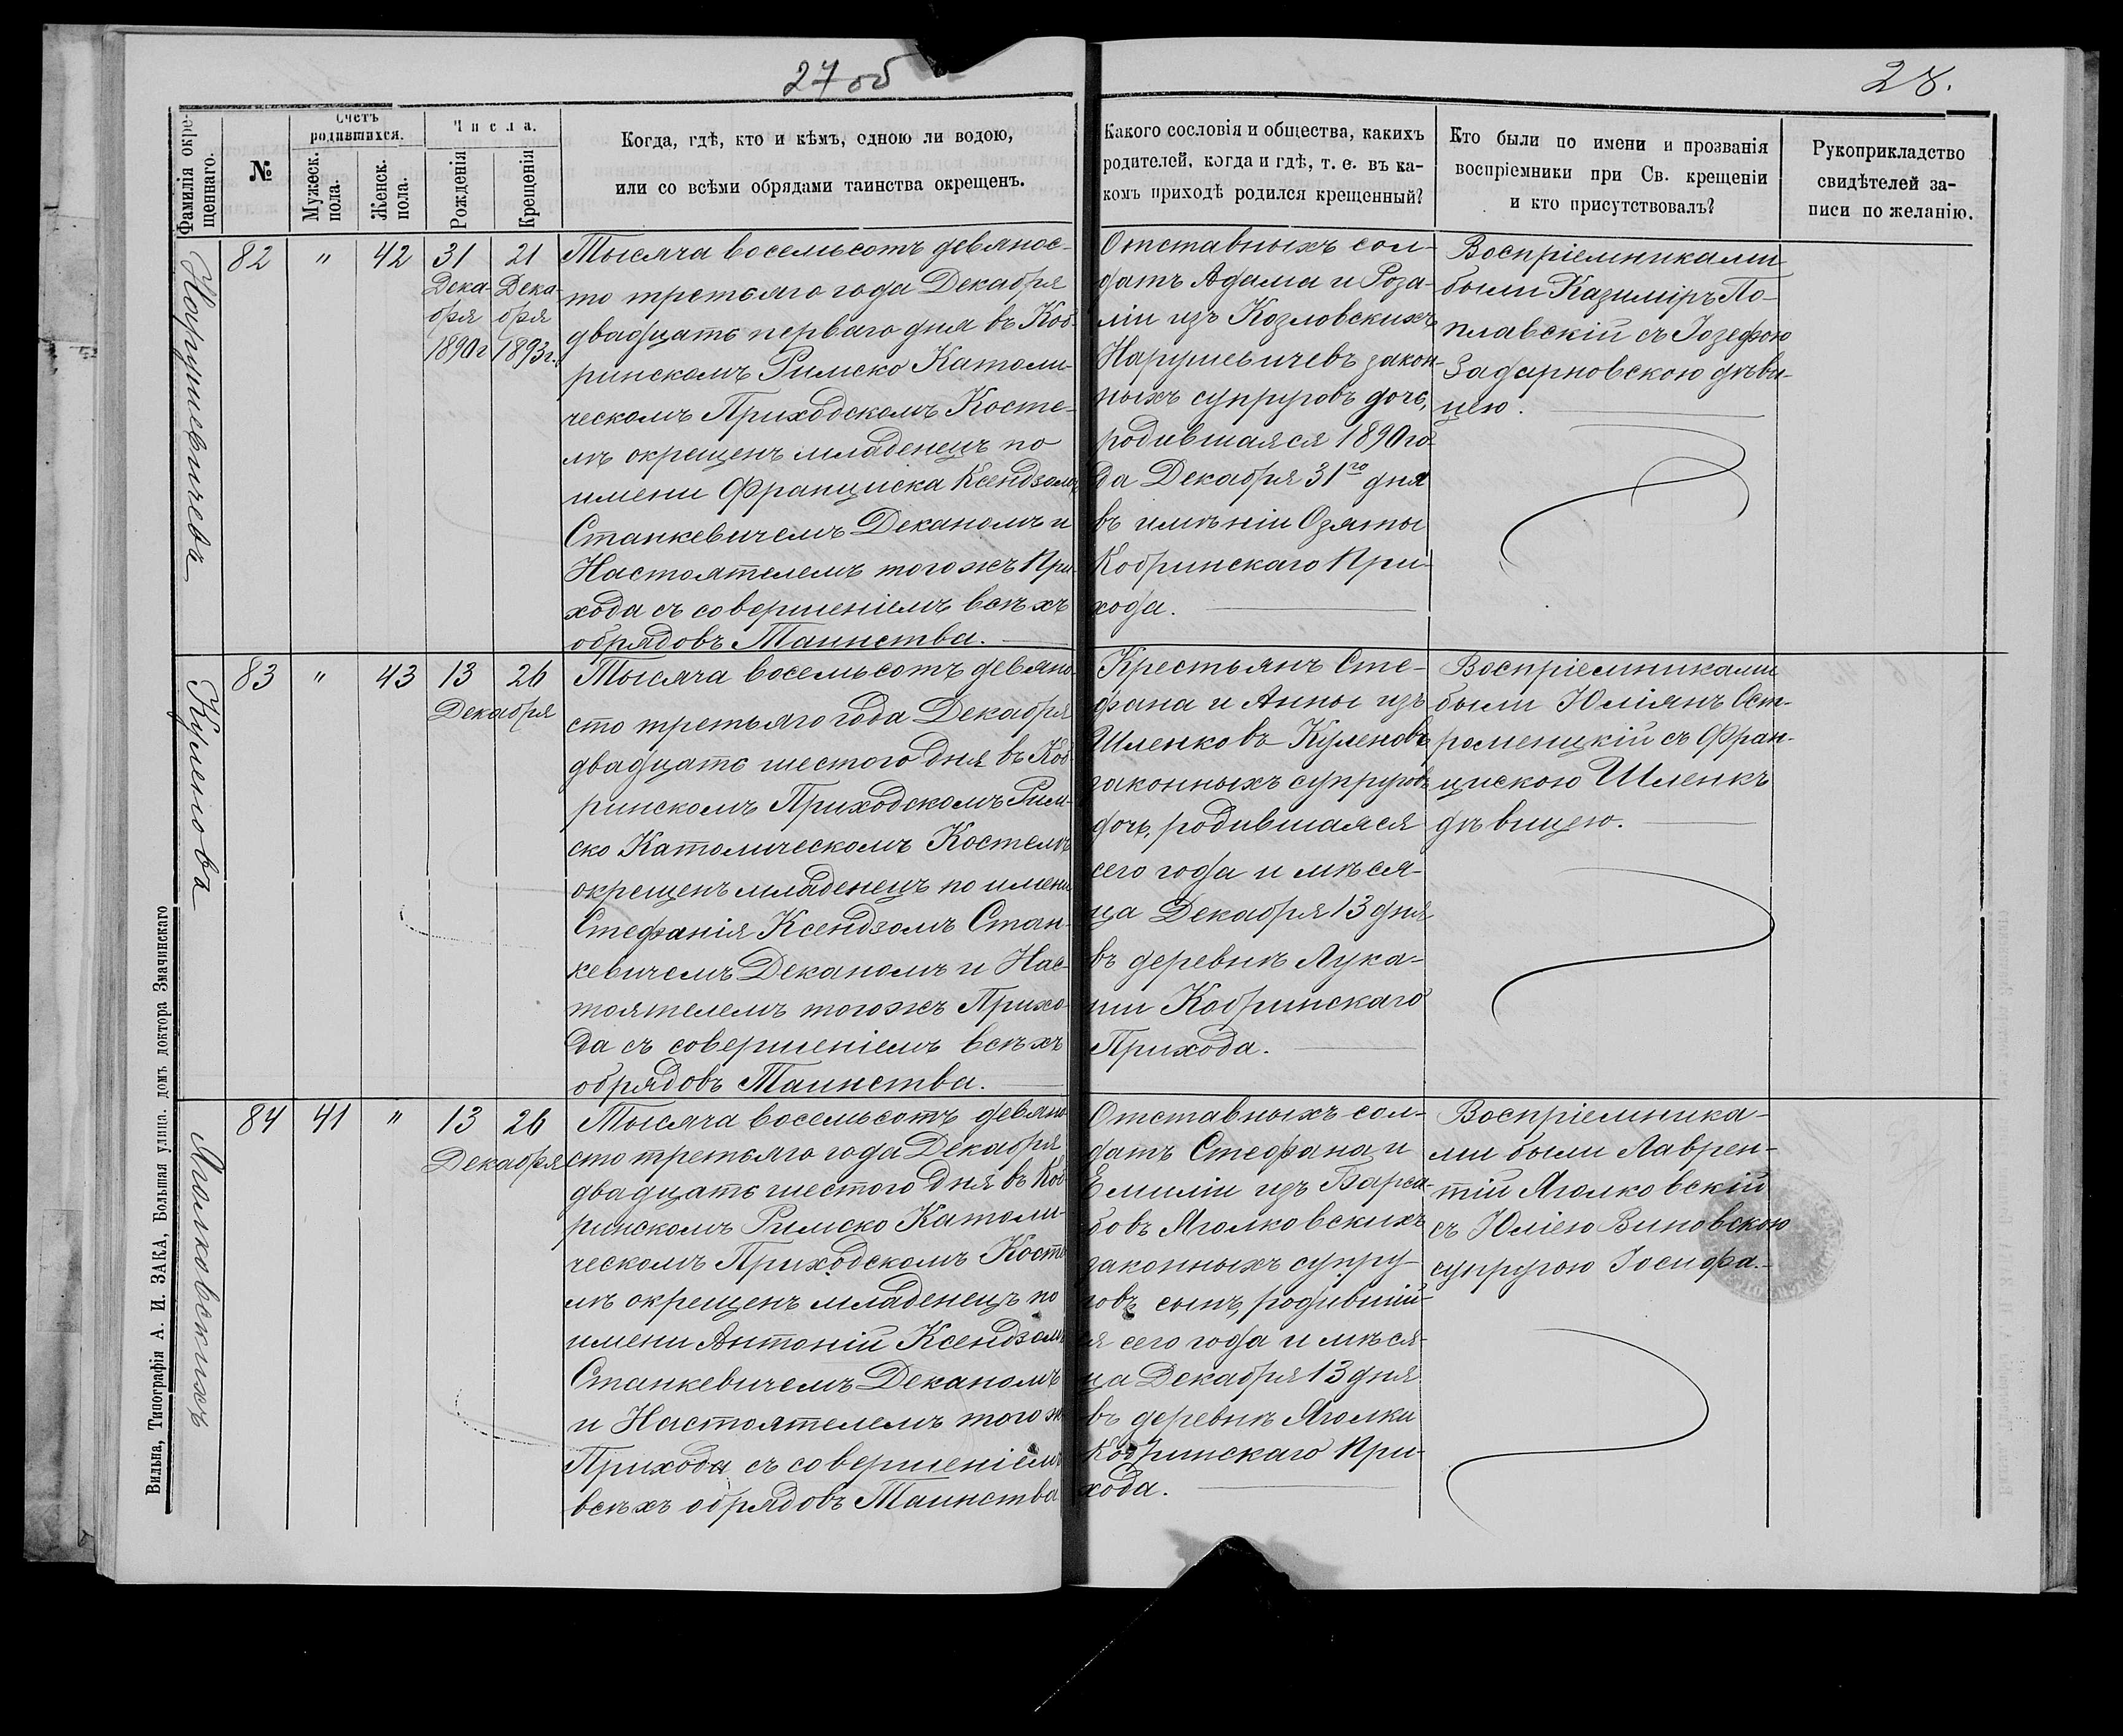 27 об
28.
Фамилія окре-
щеннаго.
№
Счетъ
родившихся.
Мужеск.
пола.
Женск.
пола.
Числа.
Рожденія
Крещенія
Когда, гдѣ, кто и кѣмъ, одною ли водою,
или со всѣми обрядами таинства окрещенъ.
Какого сословія и общества, какихъ
родителей, когда и гдѣ, т. е. въ ка-
комъ приходѣ родился крещенный?
Кто были по имени и прозванія
воспріемники при Св. крещеніи
и кто присутствовалъ?
Рукоприкладство
свидѣтелей за-
писи по желанію.
Нарушевичева
82 " 42 31 21
Дека- Дека-
бря бря
1890г 1893г.
Тысяча восемьсотъ девянос-
то третьяго года Декабря
двадцать перваго дня въ Коб-
ринскомъ Римско Католи-
ческомъ Приходскомъ Косте-
лѣ окрещенъ младенецъ по
имени Франциска Ксендзомъ
Станкевичемъ Деканомъ и
Настоятелемъ того жъ При-
хода съ совершеніемъ всѣхъ
обрядовъ Таинства.
Отставныхъ сол-
датъ Адама и Роза-
ліи изъ Козловскихъ
Нарушевичевъ закон-
ныхъ супруговъ дочь,
родившаяся 1890 го-
да Декабря 31го дня
въ имѣніи Озяты
Кобринскаго При-
хода.
Воспріемниками
были Казиміръ По-
плавскій съ Іозефою
Задарновскою дѣви-
цею.
Куленова
83 " 43 13 26
Декабря
Тысяча восемьсотъ девяно
сто третьяго года Декабря
двадцать шестого дня въ Коб
ринскомъ Приходскомъ Рим-
ско Католическомъ Костелѣ
окрещенъ младенецъ по имени
Стефанія Ксендзомъ Стан-
кевичемъ Деканомъ и Нас-
тоятелемъ того жъ Прихо-
да съ совершеніемъ всѣхъ
обрядовъ Таинства.
Крестьянъ Сте-
фана и Анны изъ
Шленковъ Куленовъ
законныхъ супруговъ
дочь, родившаяся
сего года и мѣся-
ца Декабря 13 дня
въ деревнѣ Лука-
ши Кобринскаго
Прихода.
Воспріемниками
были Юліянъ Ост-
ромецкій съ Фран-
цискою Шленкъ
дѣвицею.
Яголковскихъ
84 41 " 13 26
Декабря
Тысяча восемьсотъ девяно
сто третьяго года Декабря
двадцать шестого дня въ Коб
ринскомъ Римско Католи-
ческомъ Приходскомъ Косте
лѣ окрещенъ младенецъ по
имени Антоній Ксендзомъ
Станкевичемъ Деканомъ
и Настоятелемъ того ж
Прихода съ совершеніемъ
всѣхъ обрядовъ Таинства
Отставныхъ сол-
датъ Стефана и
Емиліи изъ
Яголковскихъ
законныхъ супру-
говъ сынъ, родивший-
ся сего года и мѣся-
ца Декабря 13 дня
въ деревнѣ Яголки
Кобринскаго При-
хода.
Воспріемника-
ми были Лаврен-
тій Яголковскій
съ Юліею Виновскою
супругою Іосифа.
Вильна, Типографія А. И. ЗАКА, Большая улица. домъ доктора Змачинскаго